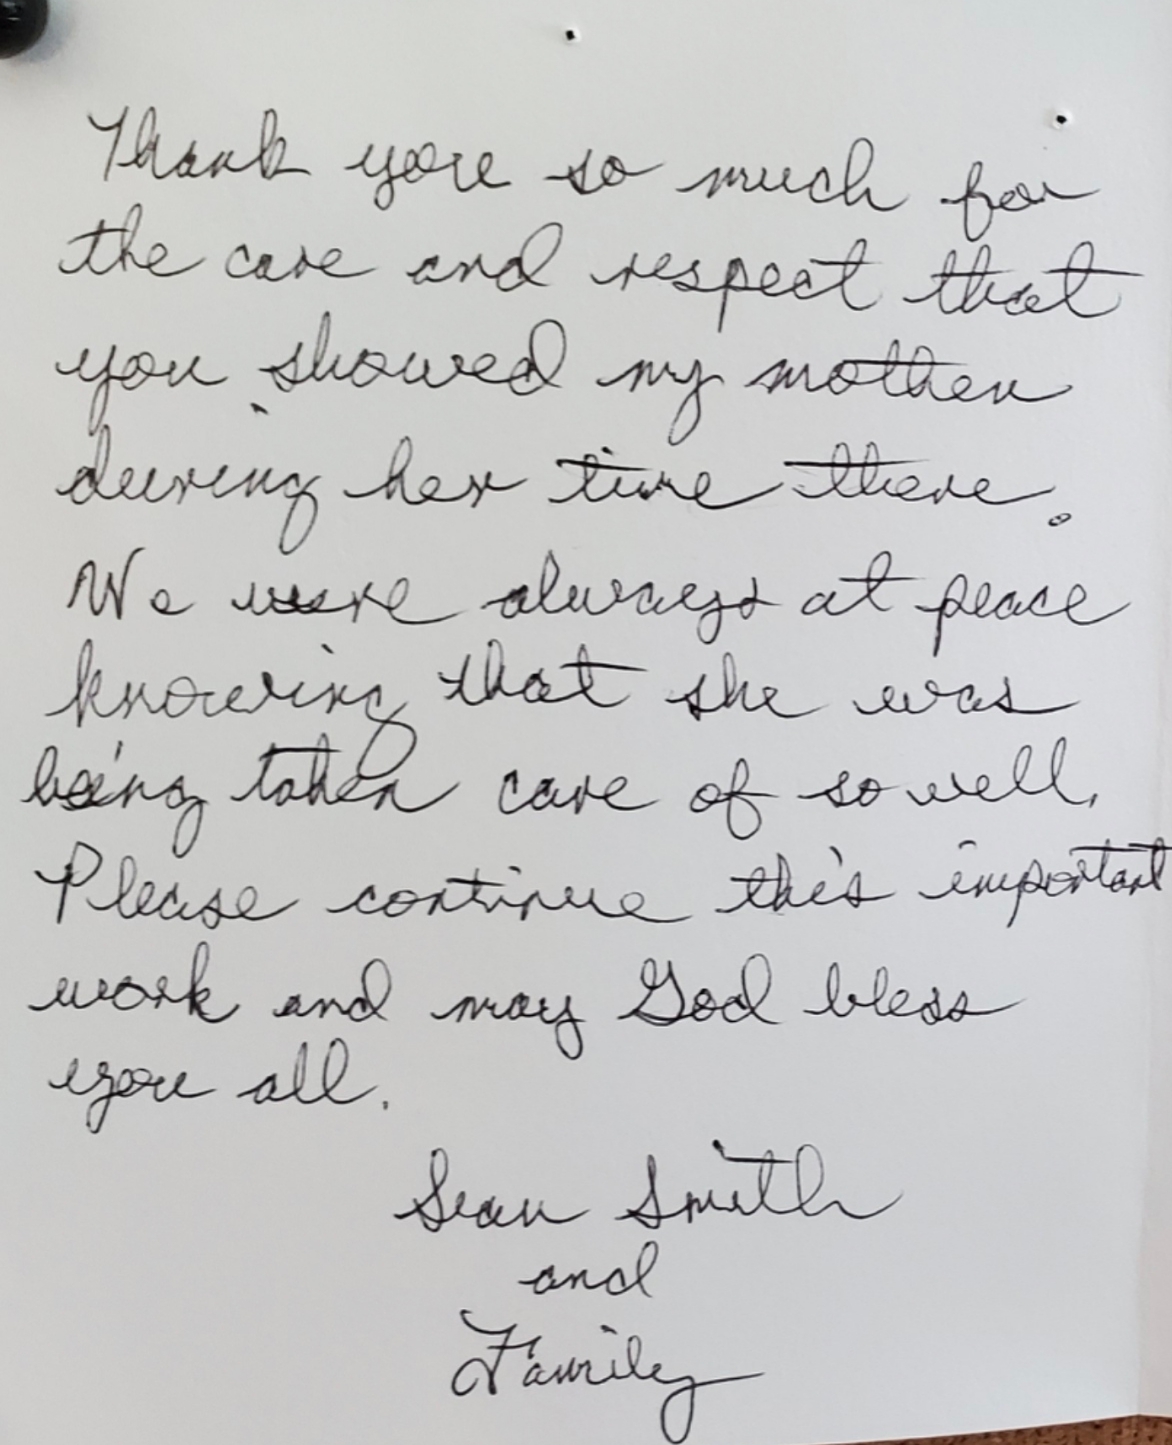 Thank you so much for
the care and respect that
you showed my mother
during her time there.
We were always at peace
knowing that she was
being taken care of so well.
Please continue this important
work and may God bless
you all.
Sean Smith
and
Family